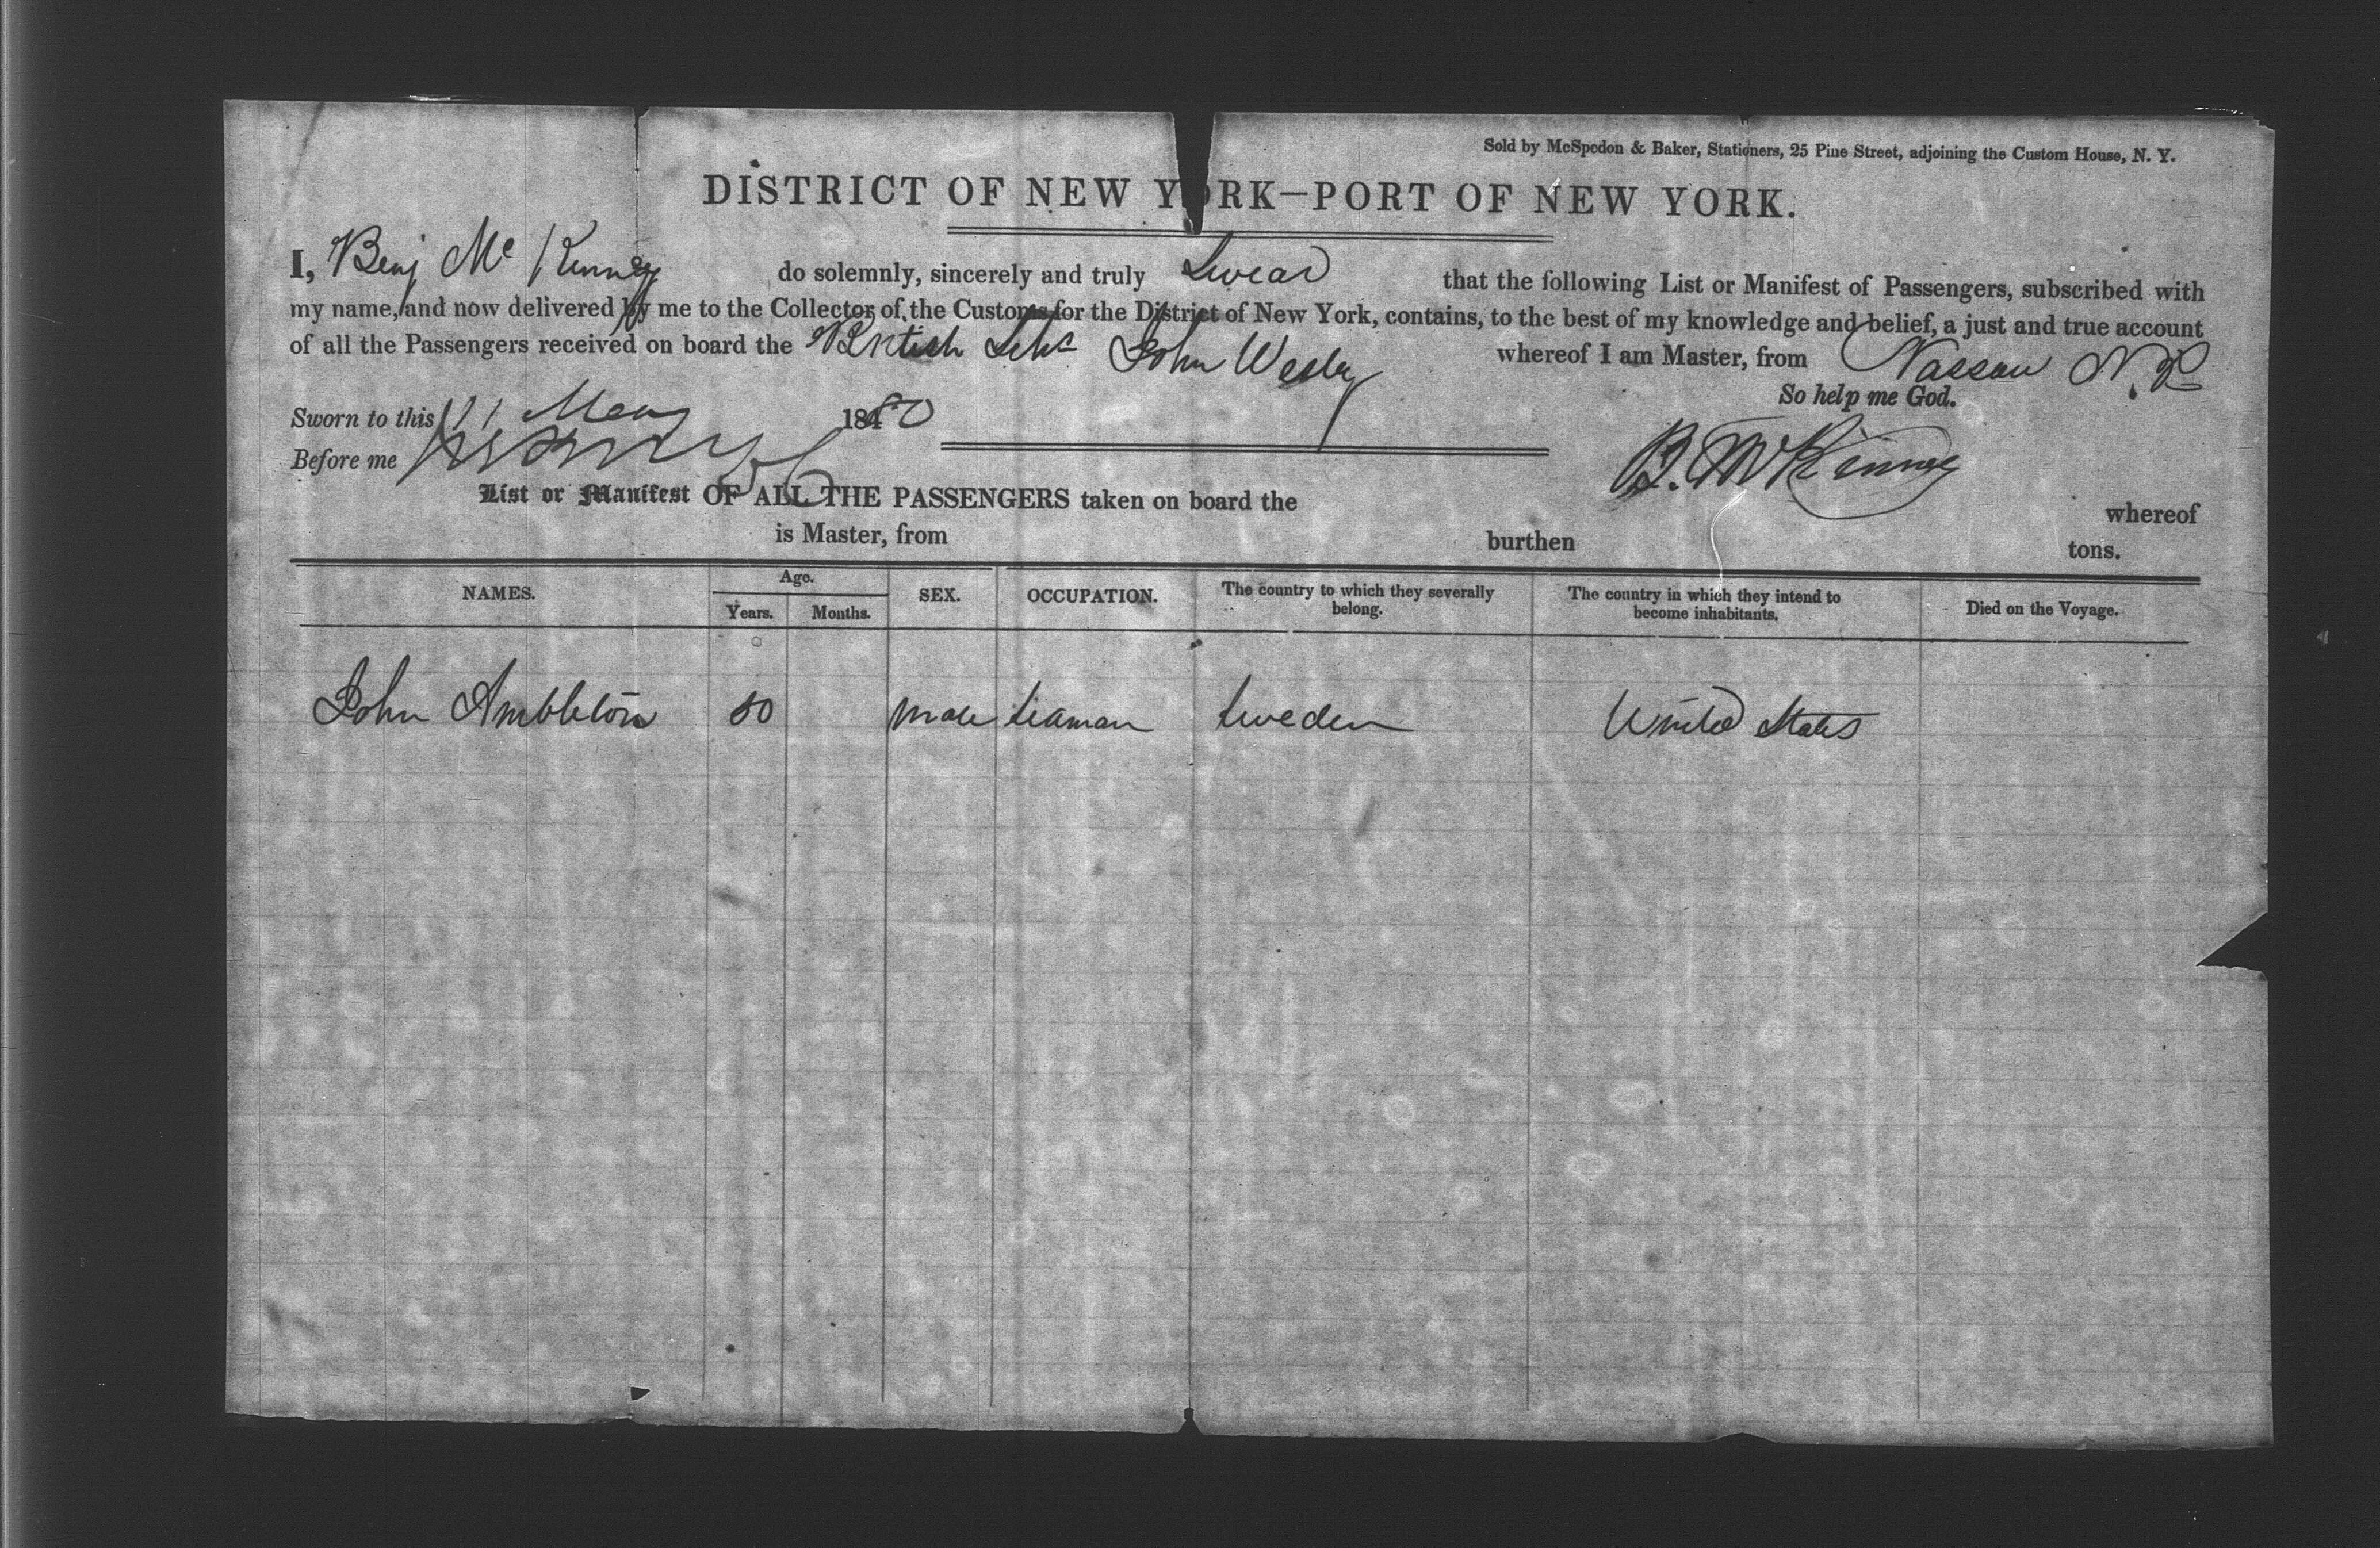 Sold by McSpedon & Baker, Stationers, 25 Pine Street, adjoining the Custom House, N. Y.
DISTRICT OF NEW YORK—PORT OF NEW YORK.
I, Benj Mc Kinney do solemnly, sincerely and truly Swear that the following List or Manifest of Passengers, subscribed with
my name, and now delivered by me to the Collector of the Customs for the District of New York, contains, to the best of my knowledge and belief, a just and true account
of all the Passengers received on board the British Schr John Wesley whereof I am Master, from Nassau N.P.
So help me God.
Sworn to this 11 May 18
Before me
B. McKinney
List or Manifest OF ALL THE PASSENGERS taken on board the whereof
is Master, from burthen tons.
NAMES. Age. Years. Months. SEX. OCCUPATION. The country to which they severally belong. The country in which they intend to become inhabitants. Died on the Voyage.
John Ambleton 50 male seaman Sweden United States